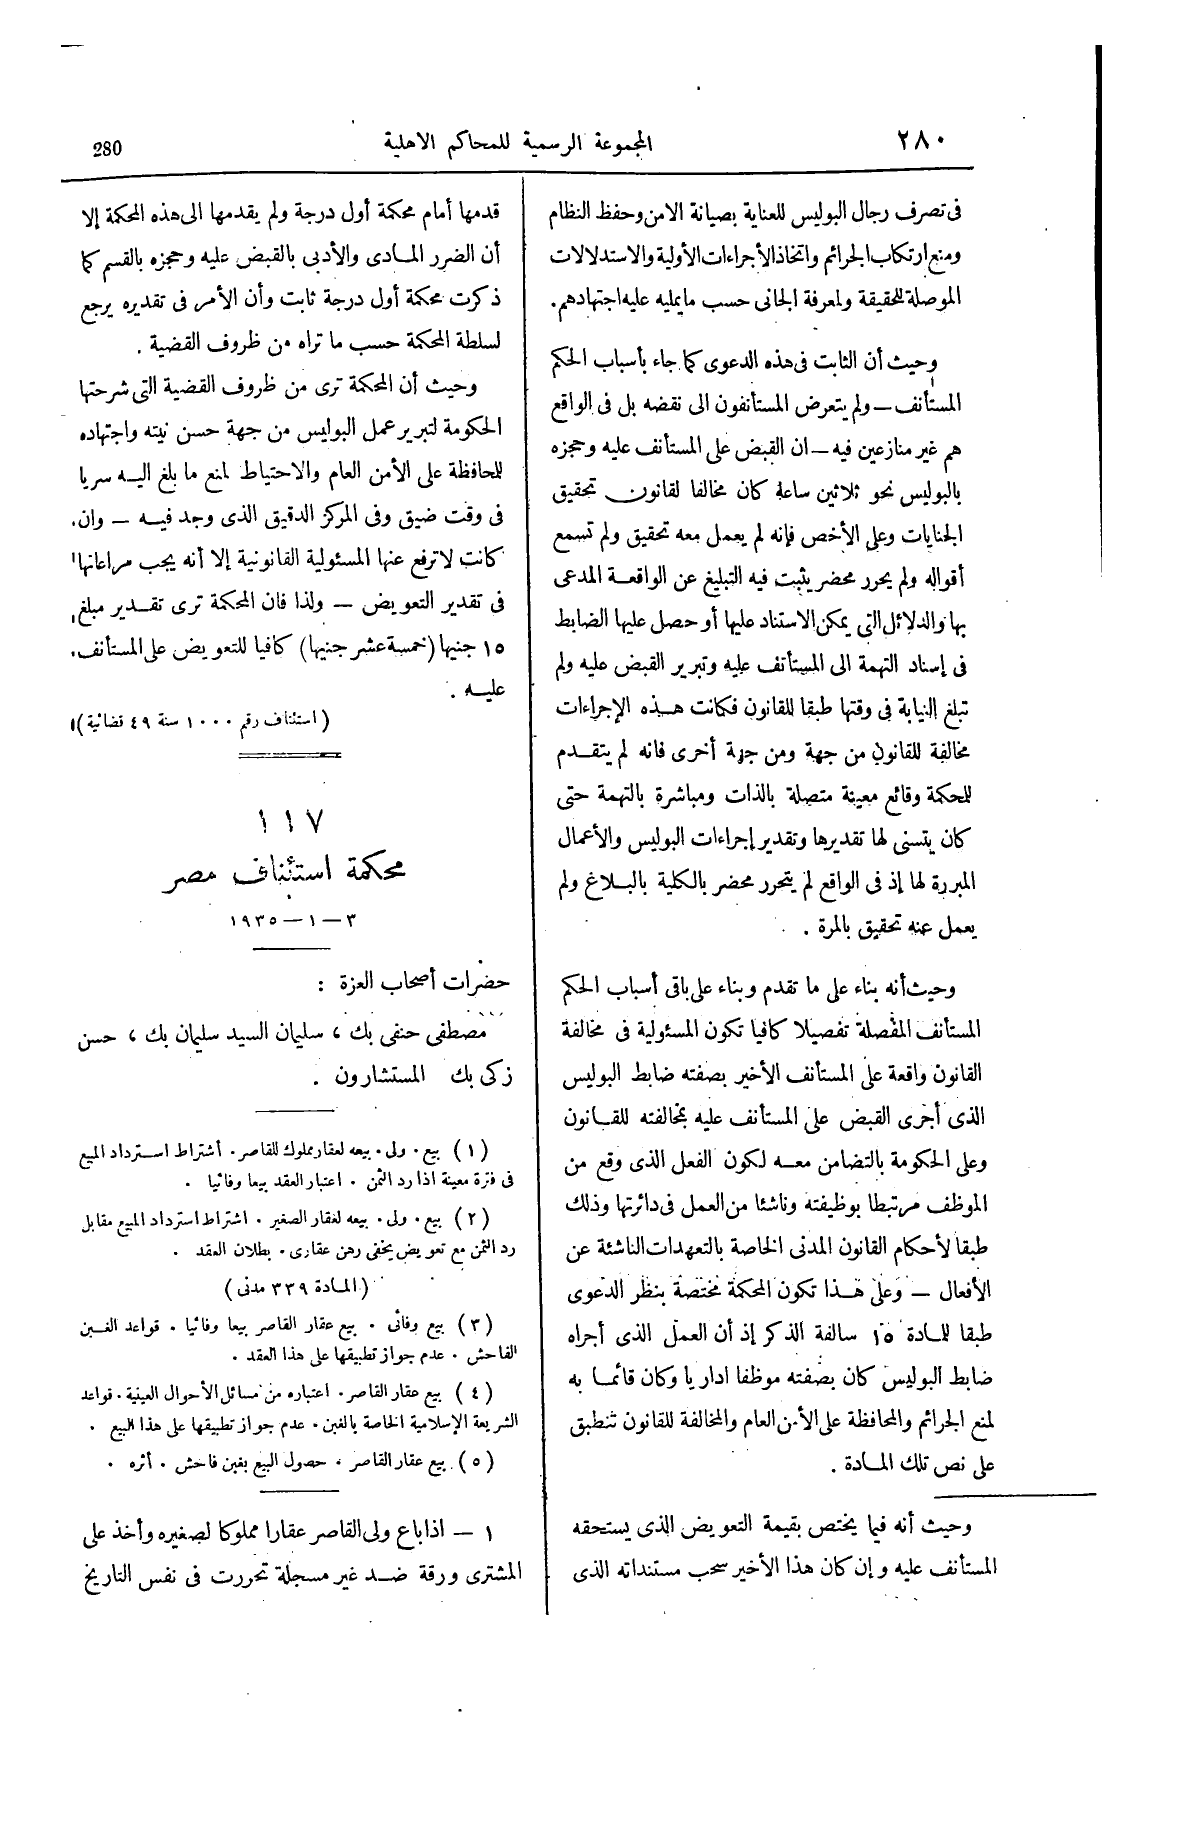 ٢٨٠
المجموعة الرسمية للمحاكم الاهلية
280
فى تصرف رجال البوليس للعناية بصيانة الامن وحفظ النظام
ومنع ارتكاب الجرائم واتخاذ الأجراءات الأولية والاستدلالات
الموصلة للحقيقة ولمعرفة الجانى حسب ما يمليه عليه اجتهادهم.
وحيث أن الثابت فى هذه الدعوى كما جاء بأسباب الحكم
المستأنف — ولم يتعرض المستأنفون الى نقضه بل فى الواقع
هم غير منازعين فيه — ان القبض على المستأنف عليه وحجزه
بالبوليس نحو ثلاثين ساعة كان مخالفا لقانون تحقيق
الجنايات وعلى الأخص فإنه لم يعمل معه تحقيق ولم تسمع
أقواله ولم يحرر محضر يثبت فيه التبليغ عن الواقعة المدعى
بها والدلائل التى يمكن الاستناد عليها أو حصل عليها الضابط
فى إسناد التهمة الى المستأنف عليه وتبرير القبض عليه ولم
تبلغ النيابة فى وقتها طبقا للقانون فكانت هذه الإجراءات
مخالفة للقانون من جهة ومن جهة أخرى فانه لم يتقدم
للمحكمة وقائع معينة متصلة بالذات ومباشرة بالتهمة حتى
كان يتسنى لها تقديرها وتقدير إجراءات البوليس والأعمال
المبررة لها إذ فى الواقع لم يتحرر محضر بالكلية بالبلاغ ولم
يعمل عنه تحقيق بالمرة .
وحيث أنه بناء على ما تقدم وبناء على باقى أسباب الحكم
المستأنف المفصلة تفصيلا كافيا تكون المسئولية فى مخالفة
القانون واقعة على المستأنف الأخير بصفته ضابط البوليس
الذى أجرى القبض على المستأنف عليه بمخالفته للقانون
وعلى الحكومة بالتضامن معه لكون الفعل الذى وقع من
الموظف مرتبطا بوظيفته وناشئا من العمل فى دائرتها وذلك
طبقا لأحكام القانون المدنى الخاصة بالتعهدات الناشئة عن
الأفعال — وعلى هذا تكون المحكمة مختصة بنظر الدعوى
طبقا للمادة ١٥ سالفة الذكر إذ أن العمل الذى أجراه
ضابط البوليس كان بصفته موظفا اداريا وكان قائما به
لمنع الجرائم والمحافظة على الأمن العام والمخالفة للقانون تنطبق
على نص تلك المادة .
وحيث أنه فيما يختص بقيمة التعويض الذى يستحقه
المستأنف عليه وإن كان هذا الأخير سحب مستنداته الذى
قدمها أمام محكمة أول درجة ولم يقدمها الى هذه المحكمة إلا
أن الضرر المادى والأدبى بالقبض عليه وحجزه بالقسم كما
ذكرت محكمة أول درجة ثابت وأن الأمر فى تقديره يرجع
لسلطة المحكمة حسب ما تراه من ظروف القضية .
وحيث أن المحكمة ترى من ظروف القضية التى شرحتها
الحكومة لتبرير عمل البوليس من جهة حسن نيته واجتهاده
للمحافظة على الأمن العام والاحتياط لمنع ما بلغ اليه سريا
فى وقت ضيق وفى المركز الدقيق الذى وجد فيه — وان
كانت لا ترفع عنها المسئولية القانونية إلا أنه يجب مراعاتها
فى تقدير التعويض — ولذا فان المحكمة ترى تقدير مبلغ
١٥ جنيها (خمسة عشر جنيها) كافيا للتعويض على المستأنف
عليه .
(استئناف رقم ١٠٠٠ سنة ٤٩ قضائية)
١١٧
محكمة استئناف مصر
٣ — ١ — ١٩٣٥
حضرات أصحاب العزة :
مصطفى حنفى بك ، سليمان السيد سليمان بك ، حسن
زكى بك المستشارون .
(١) بيع . ولى . بيعه لعقار مملوك للقاصر . أشتراط استرداد المبيع
فى فترة معينة اذا رد الثمن . اعتبار العقد بيعا وفائيا .
(٢) بيع . ولى . بيعه لعقار الصغير . اشتراط استرداد المبيع مقابل
رد الثمن مع تعويض يخفى رهن عقارى . بطلان العقد .
(المادة ٣٣٩ مدنى)
(٣) بيع وفائى . بيع عقار القاصر بيعا وفائيا . قواعد الغبن
الفاحش . عدم جواز تطبيقها على هذا العقد .
(٤) بيع عقار القاصر . اعتباره من مسائل الأحوال العينية . قواعد
الشريعة الإسلامية الخاصة بالغبن . عدم جواز تطبيقها على هذا البيع .
(٥) بيع عقار القاصر . حصول البيع بغبن فاحش . أثره .
١ — اذا باع ولى القاصر عقارا مملوكا لصغيره وأخذ على
المشترى ورقة ضد غير مسجلة تحررت فى نفس التاريخ